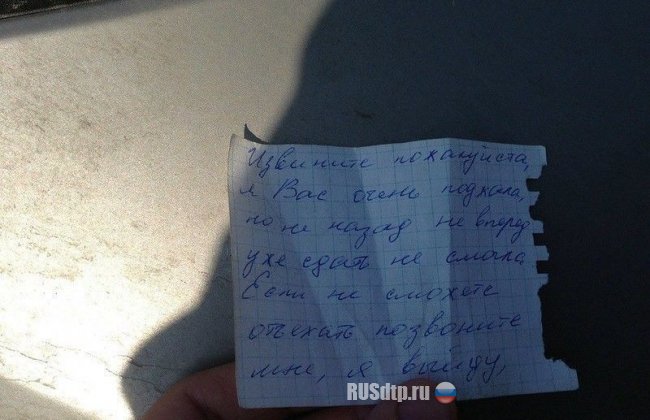 Извините пожалуйста,
я Вас очень поджала,
но не назад не вперед
уже сдать не смогла.
Если не сможете
отъехать позвоните
мне, я выйду,
RUSdtp.ru